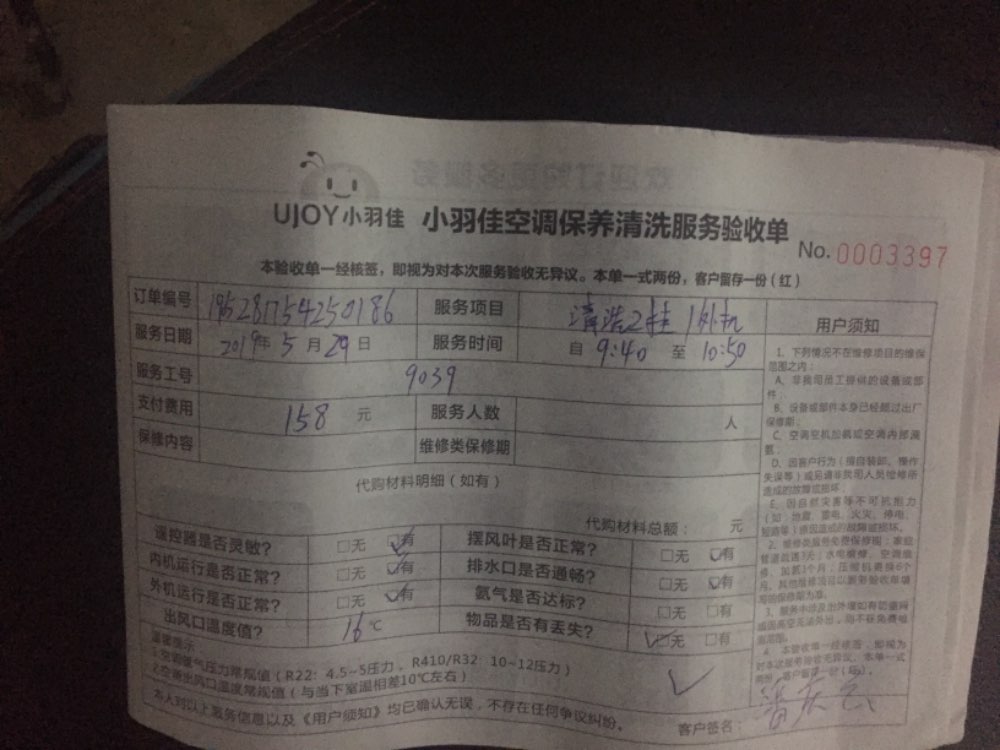 UJOY小羽佳 小羽佳空调保养清洗服务验收单
No. 0003397
本验收单一经核签，即视为对本次服务验收无异议。本单一式两份，客户留存一份（红）
订单编号 195281754250186 服务项目 清洗2挂 1外机
服务日期 2019年 5 月 29 日 服务时间 自 9:40 至 10:50
服务工号 9039
支付费用 158 元 服务人数 人
保修内容 维修类保修期
代购材料明细（如有）
代购材料总额： 元
遥控器是否灵敏？ □无 □有 摆风叶是否正常？ □无 □有
内机运行是否正常？ □无 □有 排水口是否通畅？ □无 □有
外机运行是否正常？ □无 □有 氨气是否达标？ □无 □有
出风口温度值？ 16 ℃ 物品是否有丢失？ □无 □有
温馨提示
1.空调氨气压力常规值（R22：4.5~5压力，R410/R32：10~12压力）
2.空调出风口温度常规值（与当下室温相差10℃左右）
本人对以上服务信息以及《用户须知》均已确认无误，不存在任何争议纠纷。
客户签名：
用户须知
1、下列情况不在维修项目的维保
范围之内：
A、非我司员工提供的设备或部
件；
B、设备或部件本身已经超过出厂
保修期；
C、空调空机加氨或空调内部漏
氨；
D、因客户行为（擅自装卸、操作
失误等）或另请非我司人员检修所
造成的故障或损坏；
E、因自然灾害等不可抗拒力
（如：地震、雷电、火灾、停电、
短路等）原因造成的故障或损坏。
4、本验收单一经核签，即视为
对本次服务验收无异议。本单一式
两份，客户留存一份（红）。